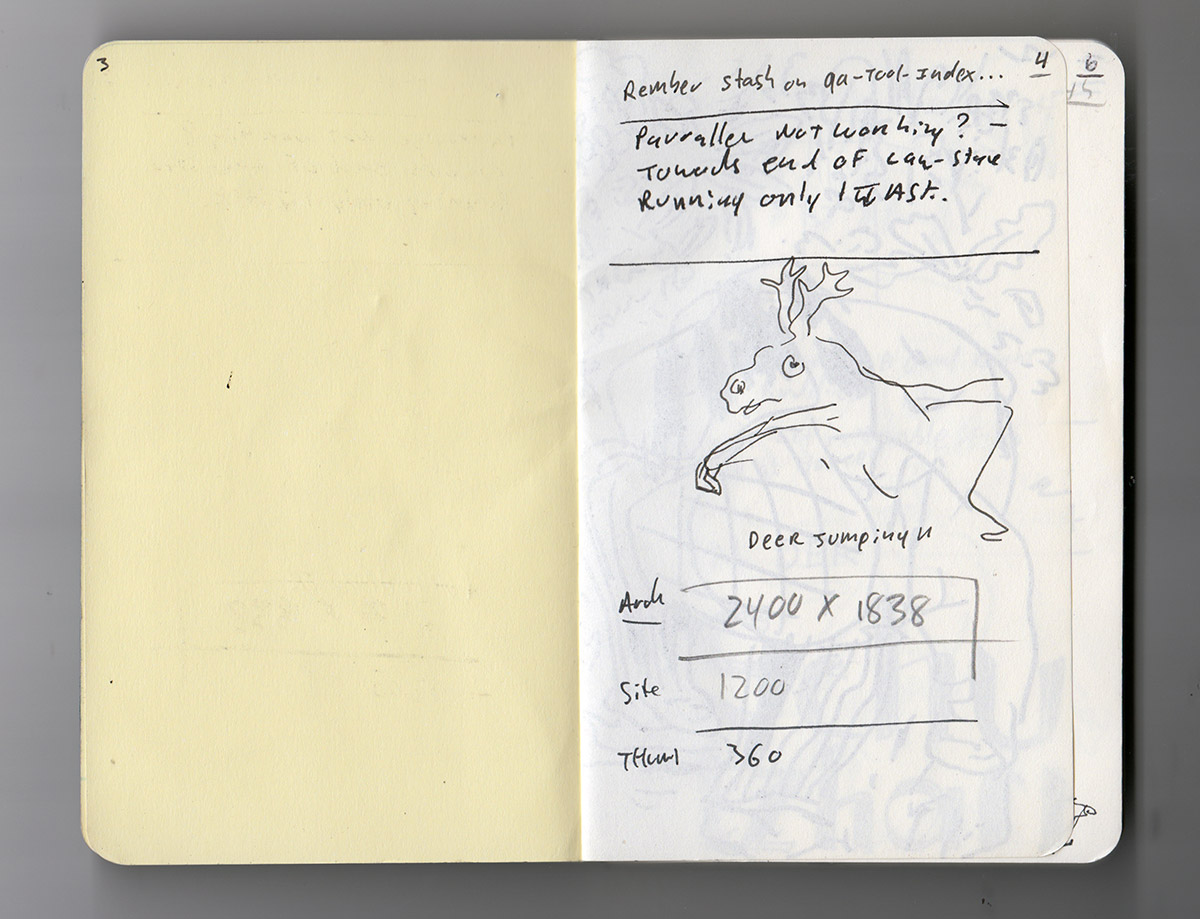 3
4
6
15
Rember stash on qa-Tool-Index...
Parraller not working? —
Towards end of
Running only 1
Deer Jumping
Arch
2400 X 1838
Site
1200
THuml
360